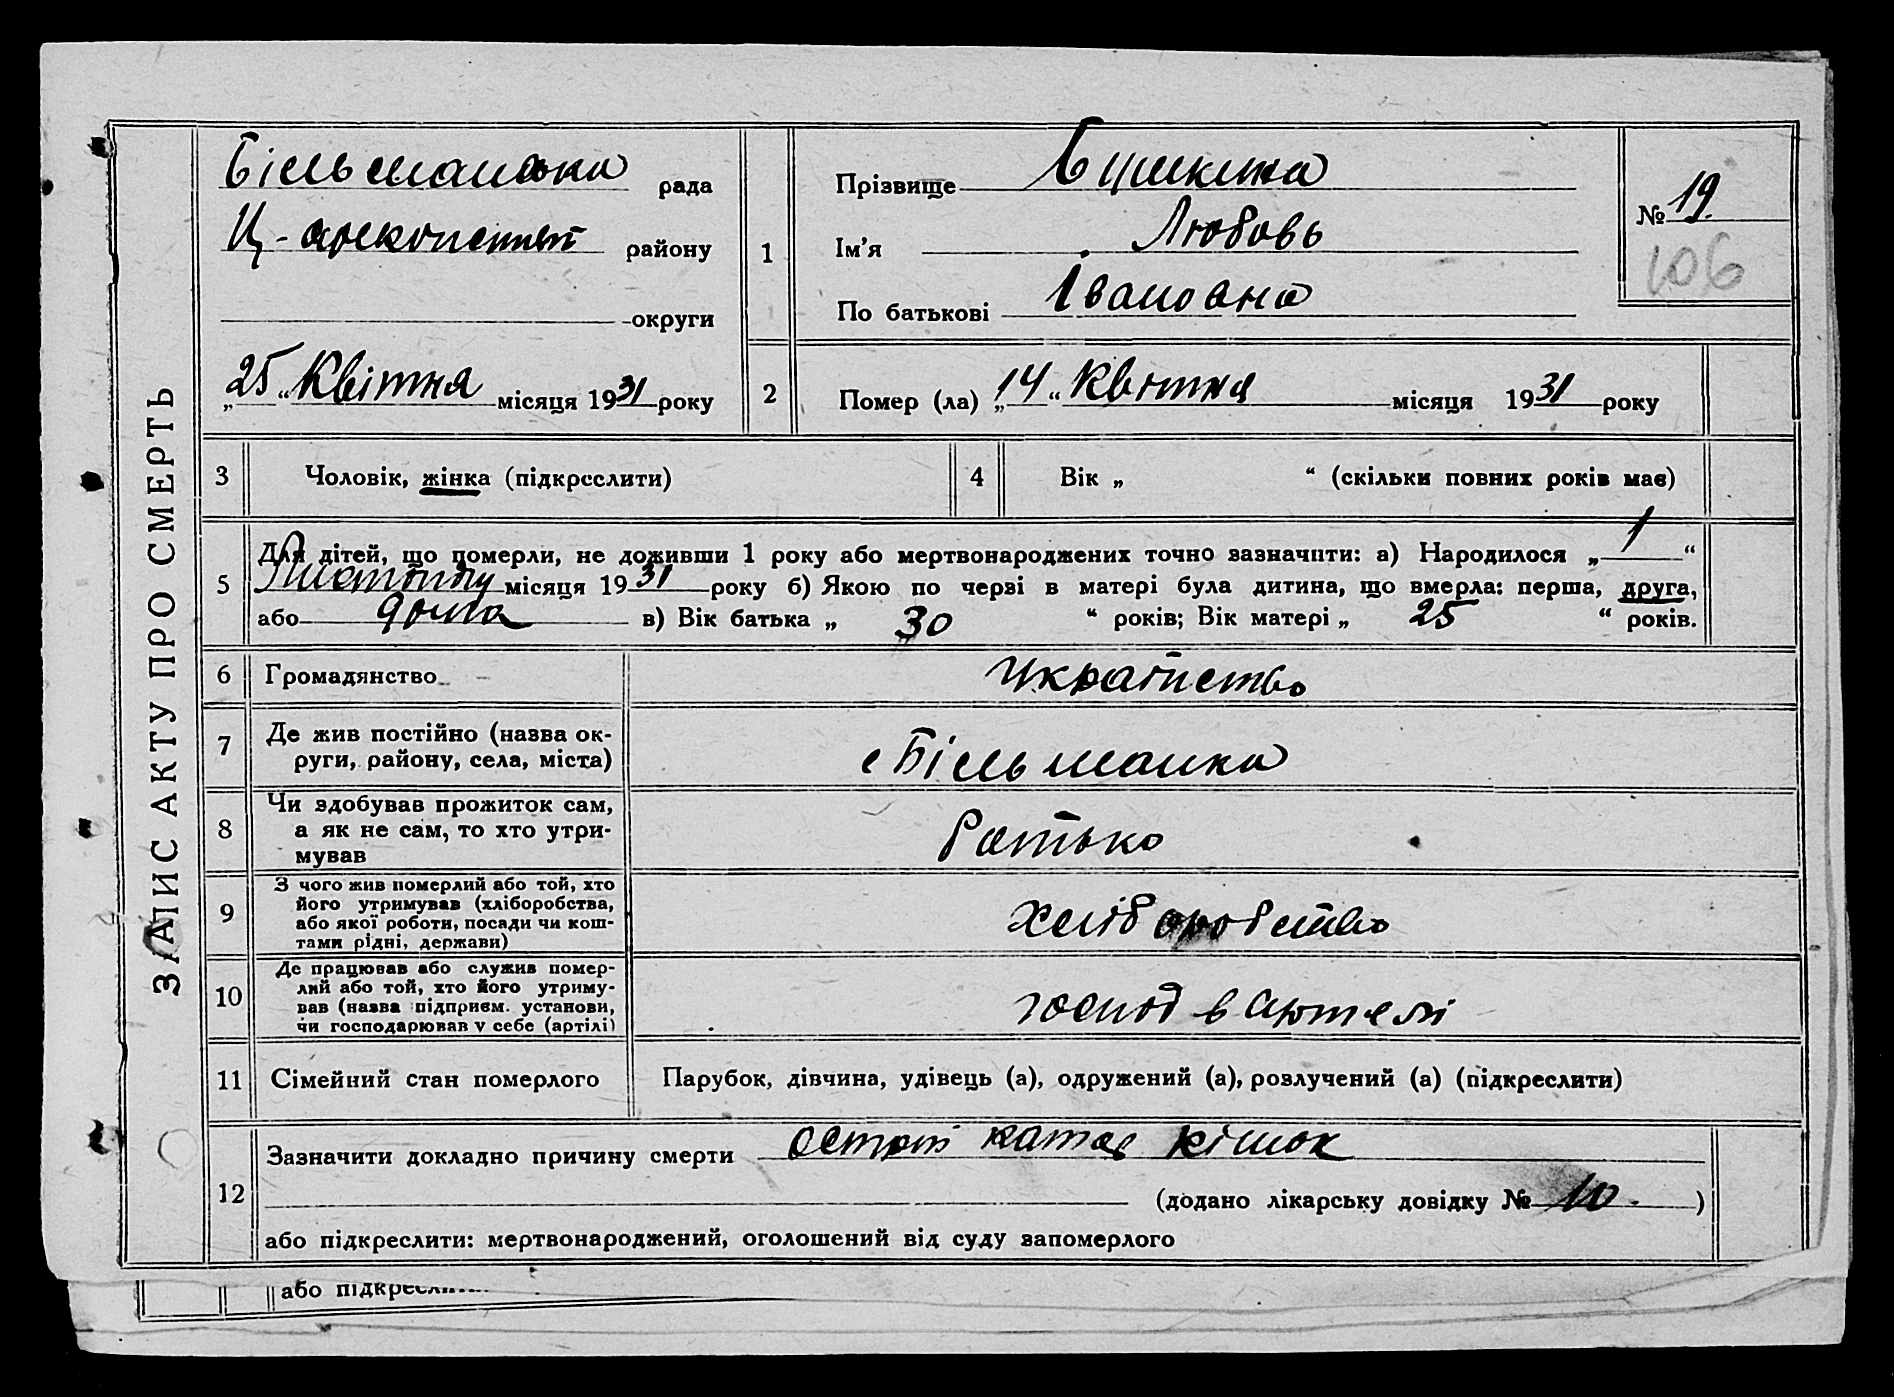 ЗАПИС АКТУ ПРО СМЕРТЬ
Більманська рада
района
округи
„25“ Квітня місяця 1931 року
1
Прізвище
Ім’я Любовь
По батькові Івановна
№ 19.
106
2
Помер (ла) „14“ Квітня місяця 1931 року
3
Чоловік, жінка (підкреслити)
4
Вік „ “ (скільки повних років має)
5
Для дітей, що померли, не доживши 1 року або мертвонароджених точно зазначити: а) Народилося „1“
місяця 1931 року б) Якою по черзі в матері була дитина, що вмерла: перша, друга,
або дочка в) Вік батька „ 30 “ років; Вік матері „ 25 “ років.
6
Громадянство
7
Де жив постійно (назва ок-
руги, району, села, міста)
с Більманка
8
Чи здобував прожиток сам,
а як не сам, то хто утри-
мував
Батько
9
З чого жив померлий або той, хто
його утримував (хліборобства,
або якої роботи, посади чи кош-
тами рідні, держави)
хліборобство
10
Де працював або служив помер-
лий або той, хто його утриму-
вав (назва підприєм. установи,
чи господарював у себе (артілі)
господ в артелі
11
Сімейний стан померлого
Парубок, дівчина, удівець (а), одружений (а), розлучений (а) (підкреслити)
12
Зазначити докладно причину смерти острий катар кішок
(додано лікарську довідку № 10. )
або підкреслити: мертвонароджений, оголошений від суду запомерлого
або підкресли